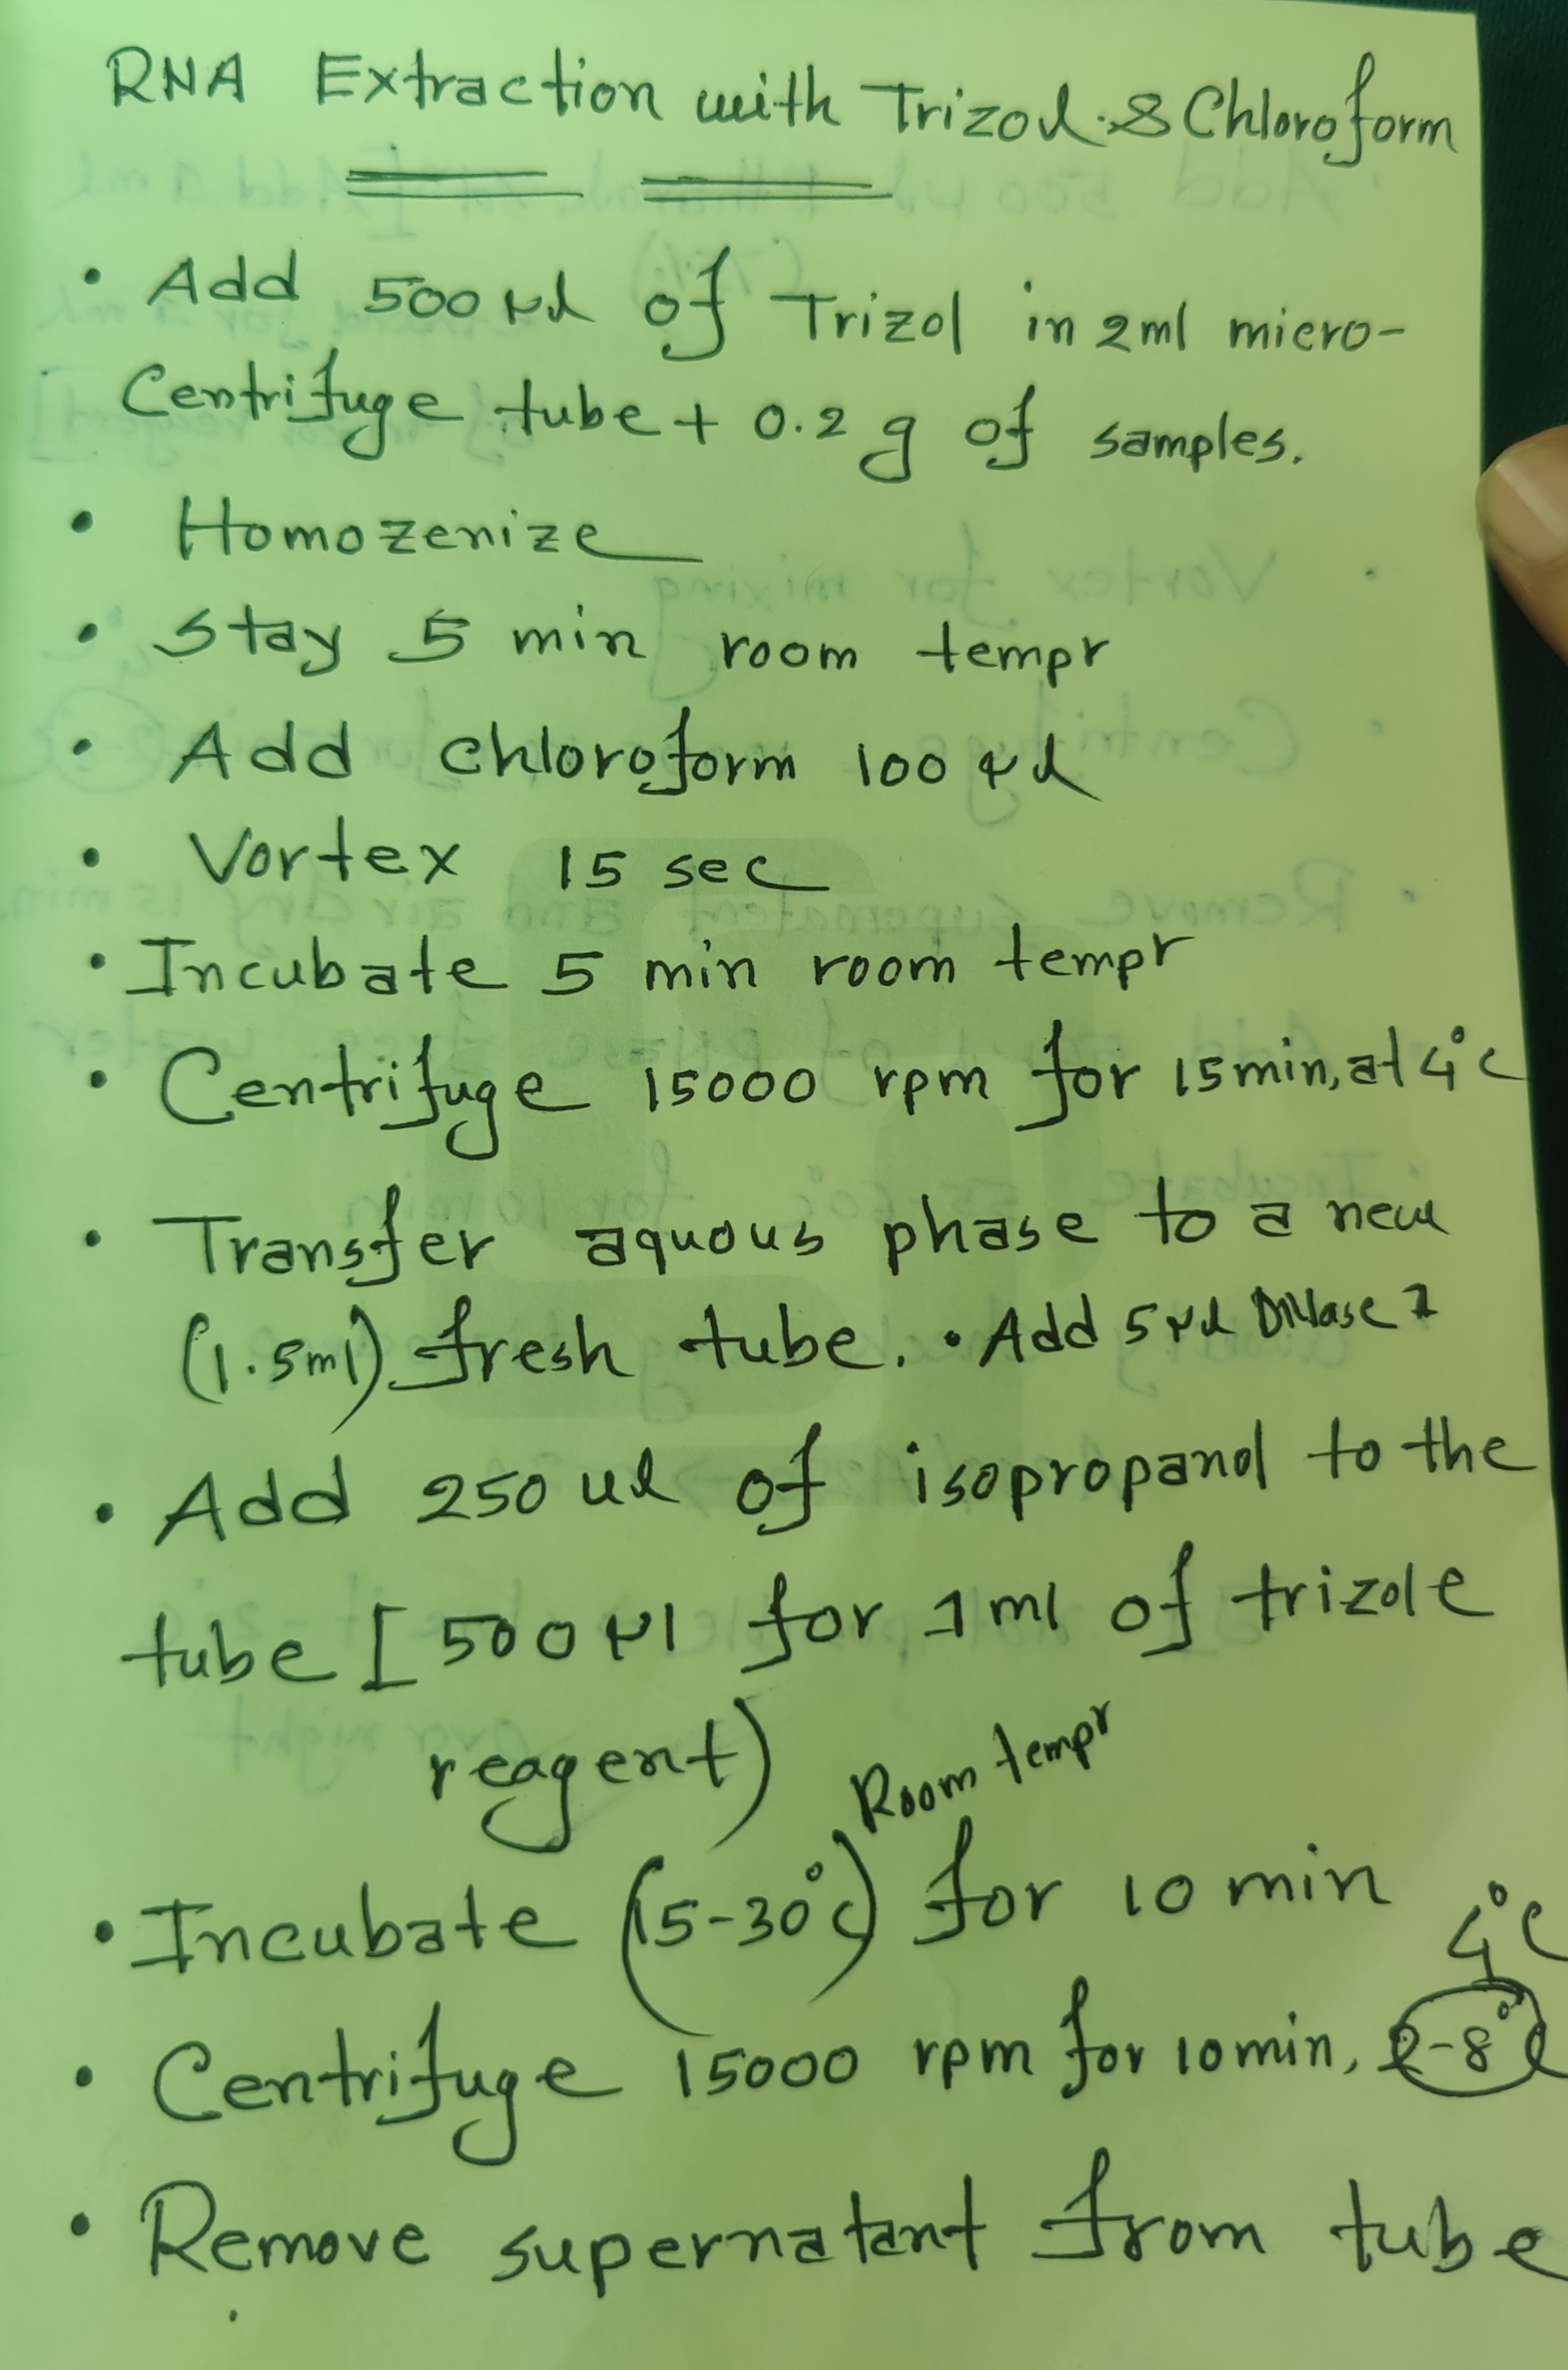 RNA Extraction with Trizol & Chloroform
• Add 500 μl of Trizol in 2ml micro-
Centrifuge tube + 0.2 g of samples.
• Homozenize
• Stay 5 min room tempr
• Add chloroform 100 μl
• Vortex 15 sec
• Incubate 5 min room tempr
• Centrifuge 15000 rpm for 15min, at 4°C
• Transfer aquous phase to a new
(1.5ml) fresh tube. • Add 5 μl DNase 1
• Add 250 ul of isopropanol to the
tube [500 μl for 1 ml of trizole
reagent)
Room tempr
• Incubate (15-30°C) for 10 min
4°C
• Centrifuge 15000 rpm for 10min, 2-8°C
• Remove supernatant from tube